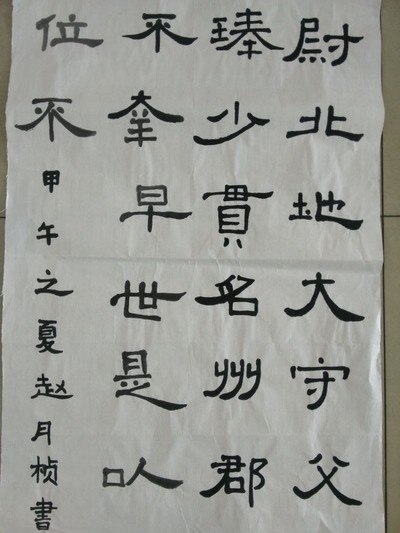 尉北地大守父
琫少貫名州郡
不幸早世是以
位不
甲午之夏赵月桢書